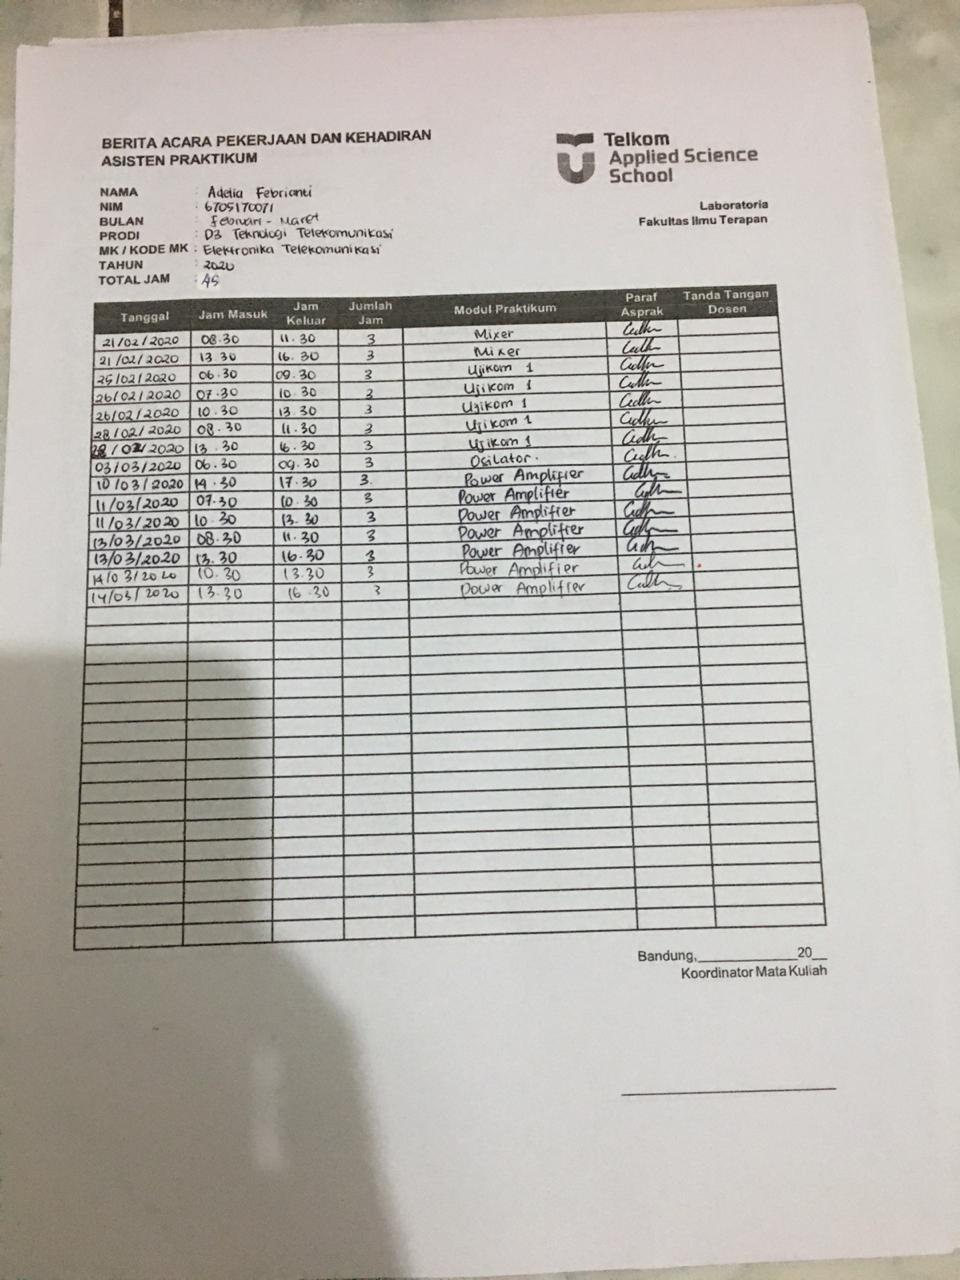 BERITA ACARA PEKERJAAN DAN KEHADIRAN
ASISTEN PRAKTIKUM
Telkom
Applied Science
School
Laboratoria
Fakultas Ilmu Terapan
NAMA : Adelia Febrianti
NIM : 6705170071
BULAN : Februari - Maret
PRODI : D3 Teknologi Telekomunikasi
MK / KODE MK : Elektronika Telekomunikasi
TAHUN : 2020
TOTAL JAM : 45
Tanggal Jam Masuk Jam Keluar Jumlah Jam Modul Praktikum Paraf Asprak Tanda Tangan Dosen
21/02/2020 08.30 11.30 3 Mixer
21/02/2020 13.30 16.30 3 Mixer
25/02/2020 06.30 09.30 3 Ujikom 1
26/02/2020 07.30 10.30 3 Ujikom 1
26/02/2020 10.30 13.30 3 Ujikom 1
28/02/2020 08.30 11.30 3 Ujikom 1
28/02/2020 13.30 16.30 3 Ujikom 1
03/03/2020 06.30 09.30 3 Osilator.
10/03/2020 14.30 17.30 3. Power Amplifier
11/03/2020 07.30 10.30 3 Power Amplifier
11/03/2020 10.30 13.30 3 Power Amplifier
13/03/2020 08.30 11.30 3 Power Amplifier
13/03/2020 13.30 16.30 3 Power Amplifier
14/03/2020 10.30 13.30 3 Power Amplifier
14/03/2020 13.30 16.30 3 Power Amplifier
Bandung,____________20__
Koordinator Mata Kuliah